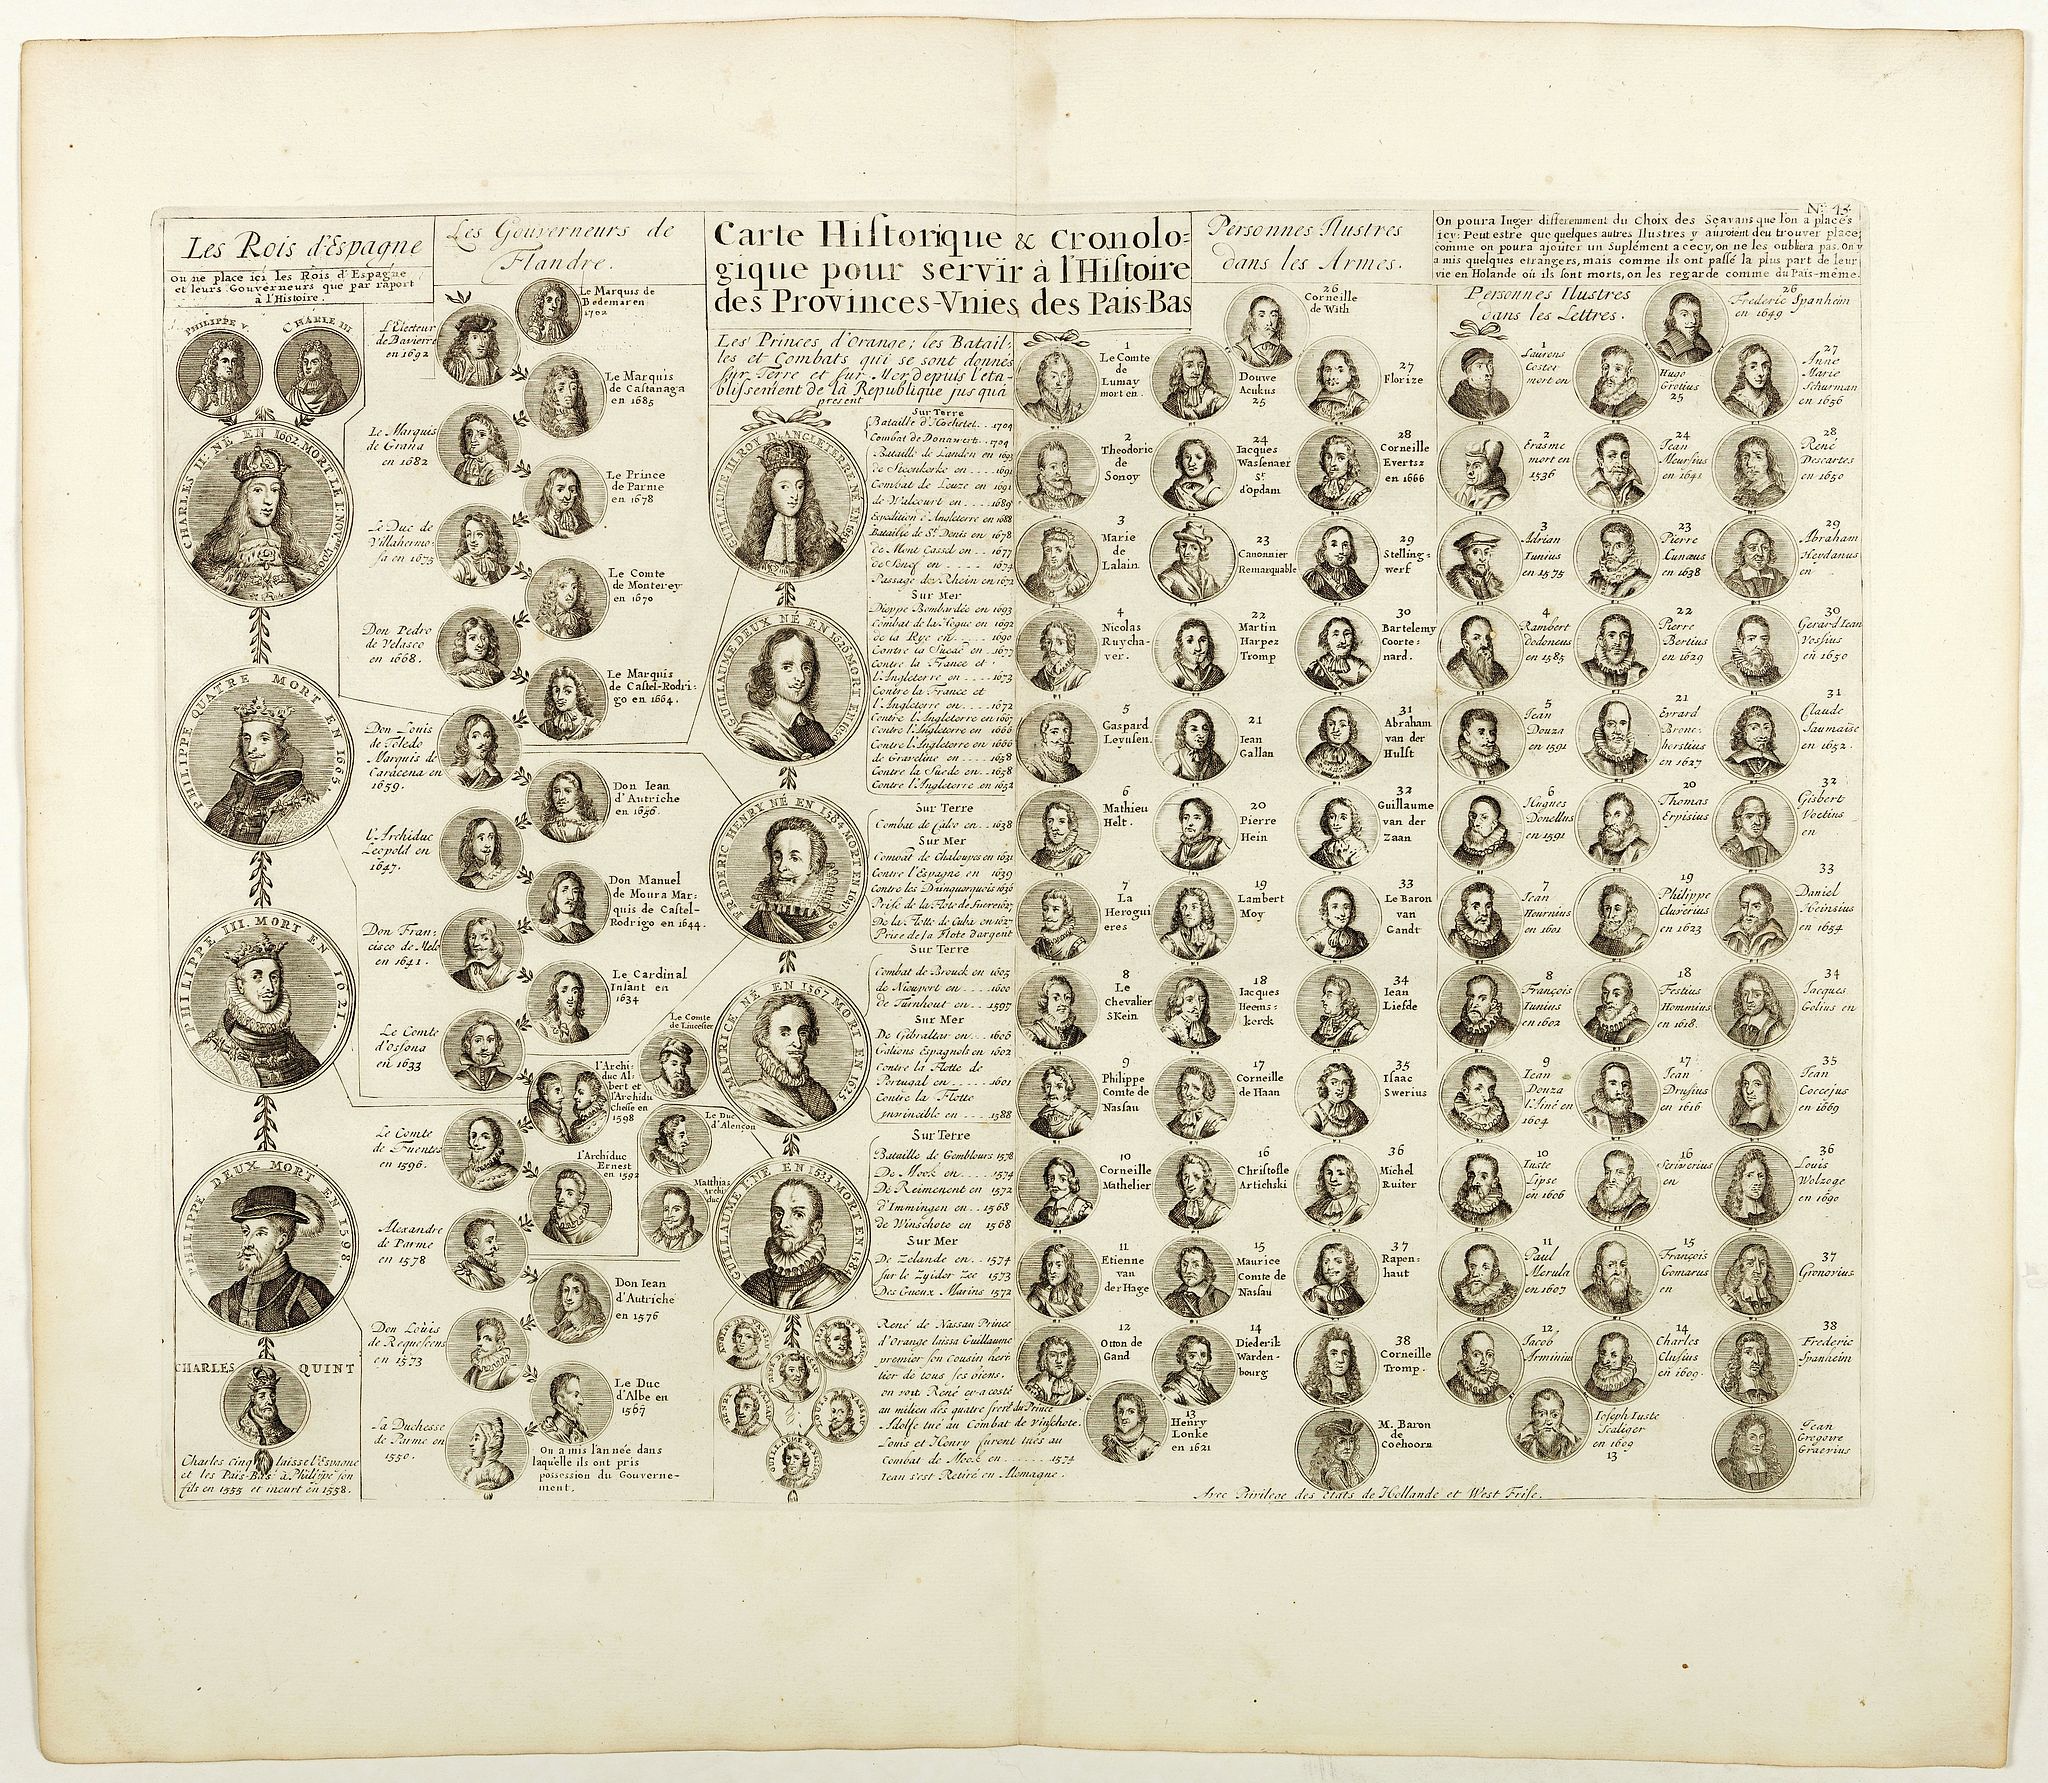 N: 43.
Les Rois d'Espagne
on ne place ici les Rois d'Espagne
et leurs Gouverneurs que par raport
à l'Histoire.
PHILIPPE V.
CHARLE III
CHARLES II. NÉ EN 1662. MORT LE I. NOV.re 1700
PHILIPPE QUATRE MORT EN 1665.
PHILIPPE III. MORT EN 1621.
PHILIPPE DEUX MORT EN 1598
CHARLES QUINT
Charles cinq laisse l'Espagne
et les Pais-Bas à Philippe son
fils en 1555 et meurt en 1558.
Les Gouverneurs de
Flandre.
Le Marquis de
Bedemar en
1702
L'Electeur
de Baviere
en 1692
Le Marquis
de Castanaga
en 1685
Le Marquis
de Grana
en 1682
Le Prince
de Parme
en 1678
Le Duc de
Villahermo-
sa en 1675
Le Comte
de Monterey
en 1670
Don Pedro
de Velasco
en 1668.
Le Marquis
de Castel-Rodri-
go en 1664.
Don Louis
de Toledo
Marquis de
Caracena en
1659.
Don Iean
d'Autriche
en 1656.
l'Archiduc
Leopold en
1647.
Don Manuel
de Moura Mar-
quis de Castel-
Rodrigo en 1644.
Don Fran-
cisco de Melo
en 1641.
Le Cardinal
Infant en
1634
Le Comte
d'Ossona
en 1633
Le Comte
de Lincester
l'Archi-
duc Al-
bert et
l'Archidu
Chesse en
1598
Le Duc
d'Alençon
Le Comte
de Fuentes
en 1596.
l'Archiduc
Ernest
en 1592
Matthias
Archi-
duc
Alexandre
de Parme
en 1578
Don Iean
d'Autriche
en 1576
Don Louis
de Requescens
en 1573
Le Duc
d'Albe en
1567
La Duchesse
de Parme en
1550.
On a mis l'année dans
laquelle ils ont pris
possession du Gouverne-
ment.
Carte Historique & Cronolo-
gique pour servir à l'Histoire
des Provinces-Vnies des Pais-Bas
Les Princes d'Orange; les Batail-
les et Combats qui se sont donnés
sur Terre et sur Mer depuis l'eta-
blissement de la Republique jusqu'à
present
GUILLAUME III. ROY D'ANGLETERRE NÉ EN 1650
GUILLAUME DEUX NÉ EN 1626 MORT EN 1650
FREDERIC HENRY NÉ EN 1584 MORT EN 1647
MAURICE NÉ EN 1567 MORT EN 1625
GUILLAUME I. NÉ EN 1533 MORT EN 1584
Sur Terre
Bataille d'Hochstet. . 1704
Combat de Donawert. . 1704
Bataille de Landen en 1693
de Steenkerke en .... 1692
Combat de Leuze en 1691
de Walcourt en .... 1689
Expedition d'Angleterre en 1688
Bataille de St. Denis en 1678
de Mont Cassel en .. 1677
de Senef en .... 1674
Passage du Rhein en 1672
Sur Mer
Dieppe Bombardée en 1693
Combat de la Hogue en 1692
de la Rye en .... 1690
Contre la Suede en .. 1677
Contre la France et
l'Angleterre en ... 1673
Contre la France et
l'Angleterre en ... 1672
Contre l'Angleterre en 1667
Contre l'Angleterre en 1666
Contre l'Angleterre en 1666
de Graveline en .... 1658
Contre la Suede en .. 1658
Contre l'Angleterre en 1652
Sur Terre
Combat de Calvo en .. 1638
Sur Mer
Combat de Chaloupes en 1631
Contre l'Espagne en 1639
Contre les Dunquerquois 1636
Prise de la Flote de Sucre 1627
De la Flotte de Cuba en 1627
Prise de la Flote d'argent
Sur Terre
Combat de Brouck en 1605
de Nieuport en ... 1600
de Turnhout en ... 1597
Sur Mer
De Gibraltar en ... 1606
Galions Espagnols en 1602
Contre la Flotte de
Portugal en ..... 1601
Contre la Flotte
invincible en .... 1588
Sur Terre
Bataille de Gemblours 1578
De Mook en .... 1574
De Reimenent en 1572
d'Immingen en .. 1568
de Winschote en 1568
Sur Mer
De Zelande en .. 1574
Sur le Zyider Zee 1573
Des Gueux Marins 1572
René de Nassau Prince
d'Orange laissa Guillaume
premier son Cousin heri
tier de tous ses biens.
on voit René cy-a costé
au milieu des quatre frere du Prince
Adolfe tué au Combat de Vinschote.
Louis et Henry furent tués au
Combat de Mook en ...... 1574
Iean s'est Retiré en Alemagne.
Personnes Ilustres
dans les Armes.
1
Le Comte
de
Lumay
mort en.
2
Theodoric
de
Sonoy
3
Marie
de
Lalain
4
Nicolas
Ruycha-
ver.
5
Gaspard
Leynsen.
6
Mathieu
Helt.
7
La
Herogui
eres
8
Le
Chevalier
SKein
9
Philippe
Comte de
Nassau
10
Corneille
Mathelier
11
Etienne
van
der Hage
12
Otton de
Gand
13
Henry
Lonke
en 1621
14
Diederik
Warden-
bourg
15
Maurice
Comte de
Nassau
16
Christofle
Artichski
17
Corneille
de Haan
18
Iacques
Heems-
kerck
19
Lambert
Moy
20
Pierre
Hein
21
Iean
Gallan
22
Martin
Harpez
Tromp
23
Canonnier
Remarquable
24
Iacques
Wassenaer
Sr.
d'Opdam
Douwe
Aukus
25
26
Corneille
de With
27
Florize
28
Corneille
Evertsz
en 1666
29
Stelling-
werf
30
Bartelemy
Coorte-
nard.
31
Abraham
van der
Hulst
32
Guillaume
van der
Zaan
33
Le Baron
van
Gandt
34
Iean
Liefde
35
Isaac
Swerius
36
Michel
Ruiter
37
Rapen-
haut
38
Corneille
Tromp.
M. Baron
de
Coehoorn
On poura Iuger differemment du Choix des Sçavans que l'on a placés
icy: Peut estre que quelques autres Ilustres y auroient deu trouver place;
comme on poura ajoûter un Suplément a cecy, on ne les oubliera pas. On y
a mis quelques etrangers, mais comme ils ont passé la plus part de leur
vie en Holande où ils sont morts, on les regarde comme du Païs-même.
Personnes Ilustres
dans les Lettres.
1
Laurens
Coster
mort en
2
Erasme
mort en
1536
3
Adrian
Iunius
en 1575
4
Rambert
Dodoneus
en 1585
5
Iean
Douza
en 1591
6
Hugues
Donellus
en 1591
7
Iean
Heurnius
en 1601
8
François
Iunius
en 1602
9
Iean
Douza
l'Ainé en
1604
10
Iuste
Lipse
en 1606
11
Paul
Merula
en 1607
12
Iacob
Arminius
Ioseph Iuste
Scaliger
en 1609
13
14
Charles
Clusius
en 1609.
15
François
Gomarus
en
16
Scriverius
en
17
Iean
Drusius
en 1616
18
Festius
Hommius
en 1618.
19
Philippe
Cluverius
en 1623
20
Thomas
Erpisius
21
Evrard
Bronc-
herstius
en 1627
22
Pierre
Bertius
en 1629
23
Pierre
Cunæus
en 1638
24
Iean
Meursius
en 1641
Hugo
Grotius
25
26
Frederic Spanheim
en 1649
27
Anne
Marie
Schurman
en 1656
28
René
Descartes
en 1650
29
Abraham
Heydanus
en
30
Gerard Iean
Vossius
en 1650
31
Claude
Saumaise
en 1652.
32
Gisbert
Voetius
en
33
Daniel
Heinsius
en 1654
34
Iacques
Golius en
35
Iean
Coccejus
en 1669
36
Louis
Wolzoge
en 1690
37
Gronovius
38
Frederic
Spanheim
Iean
Gregoire
Graevius
Avec Privilege des Etats de Hollande et West Frise.